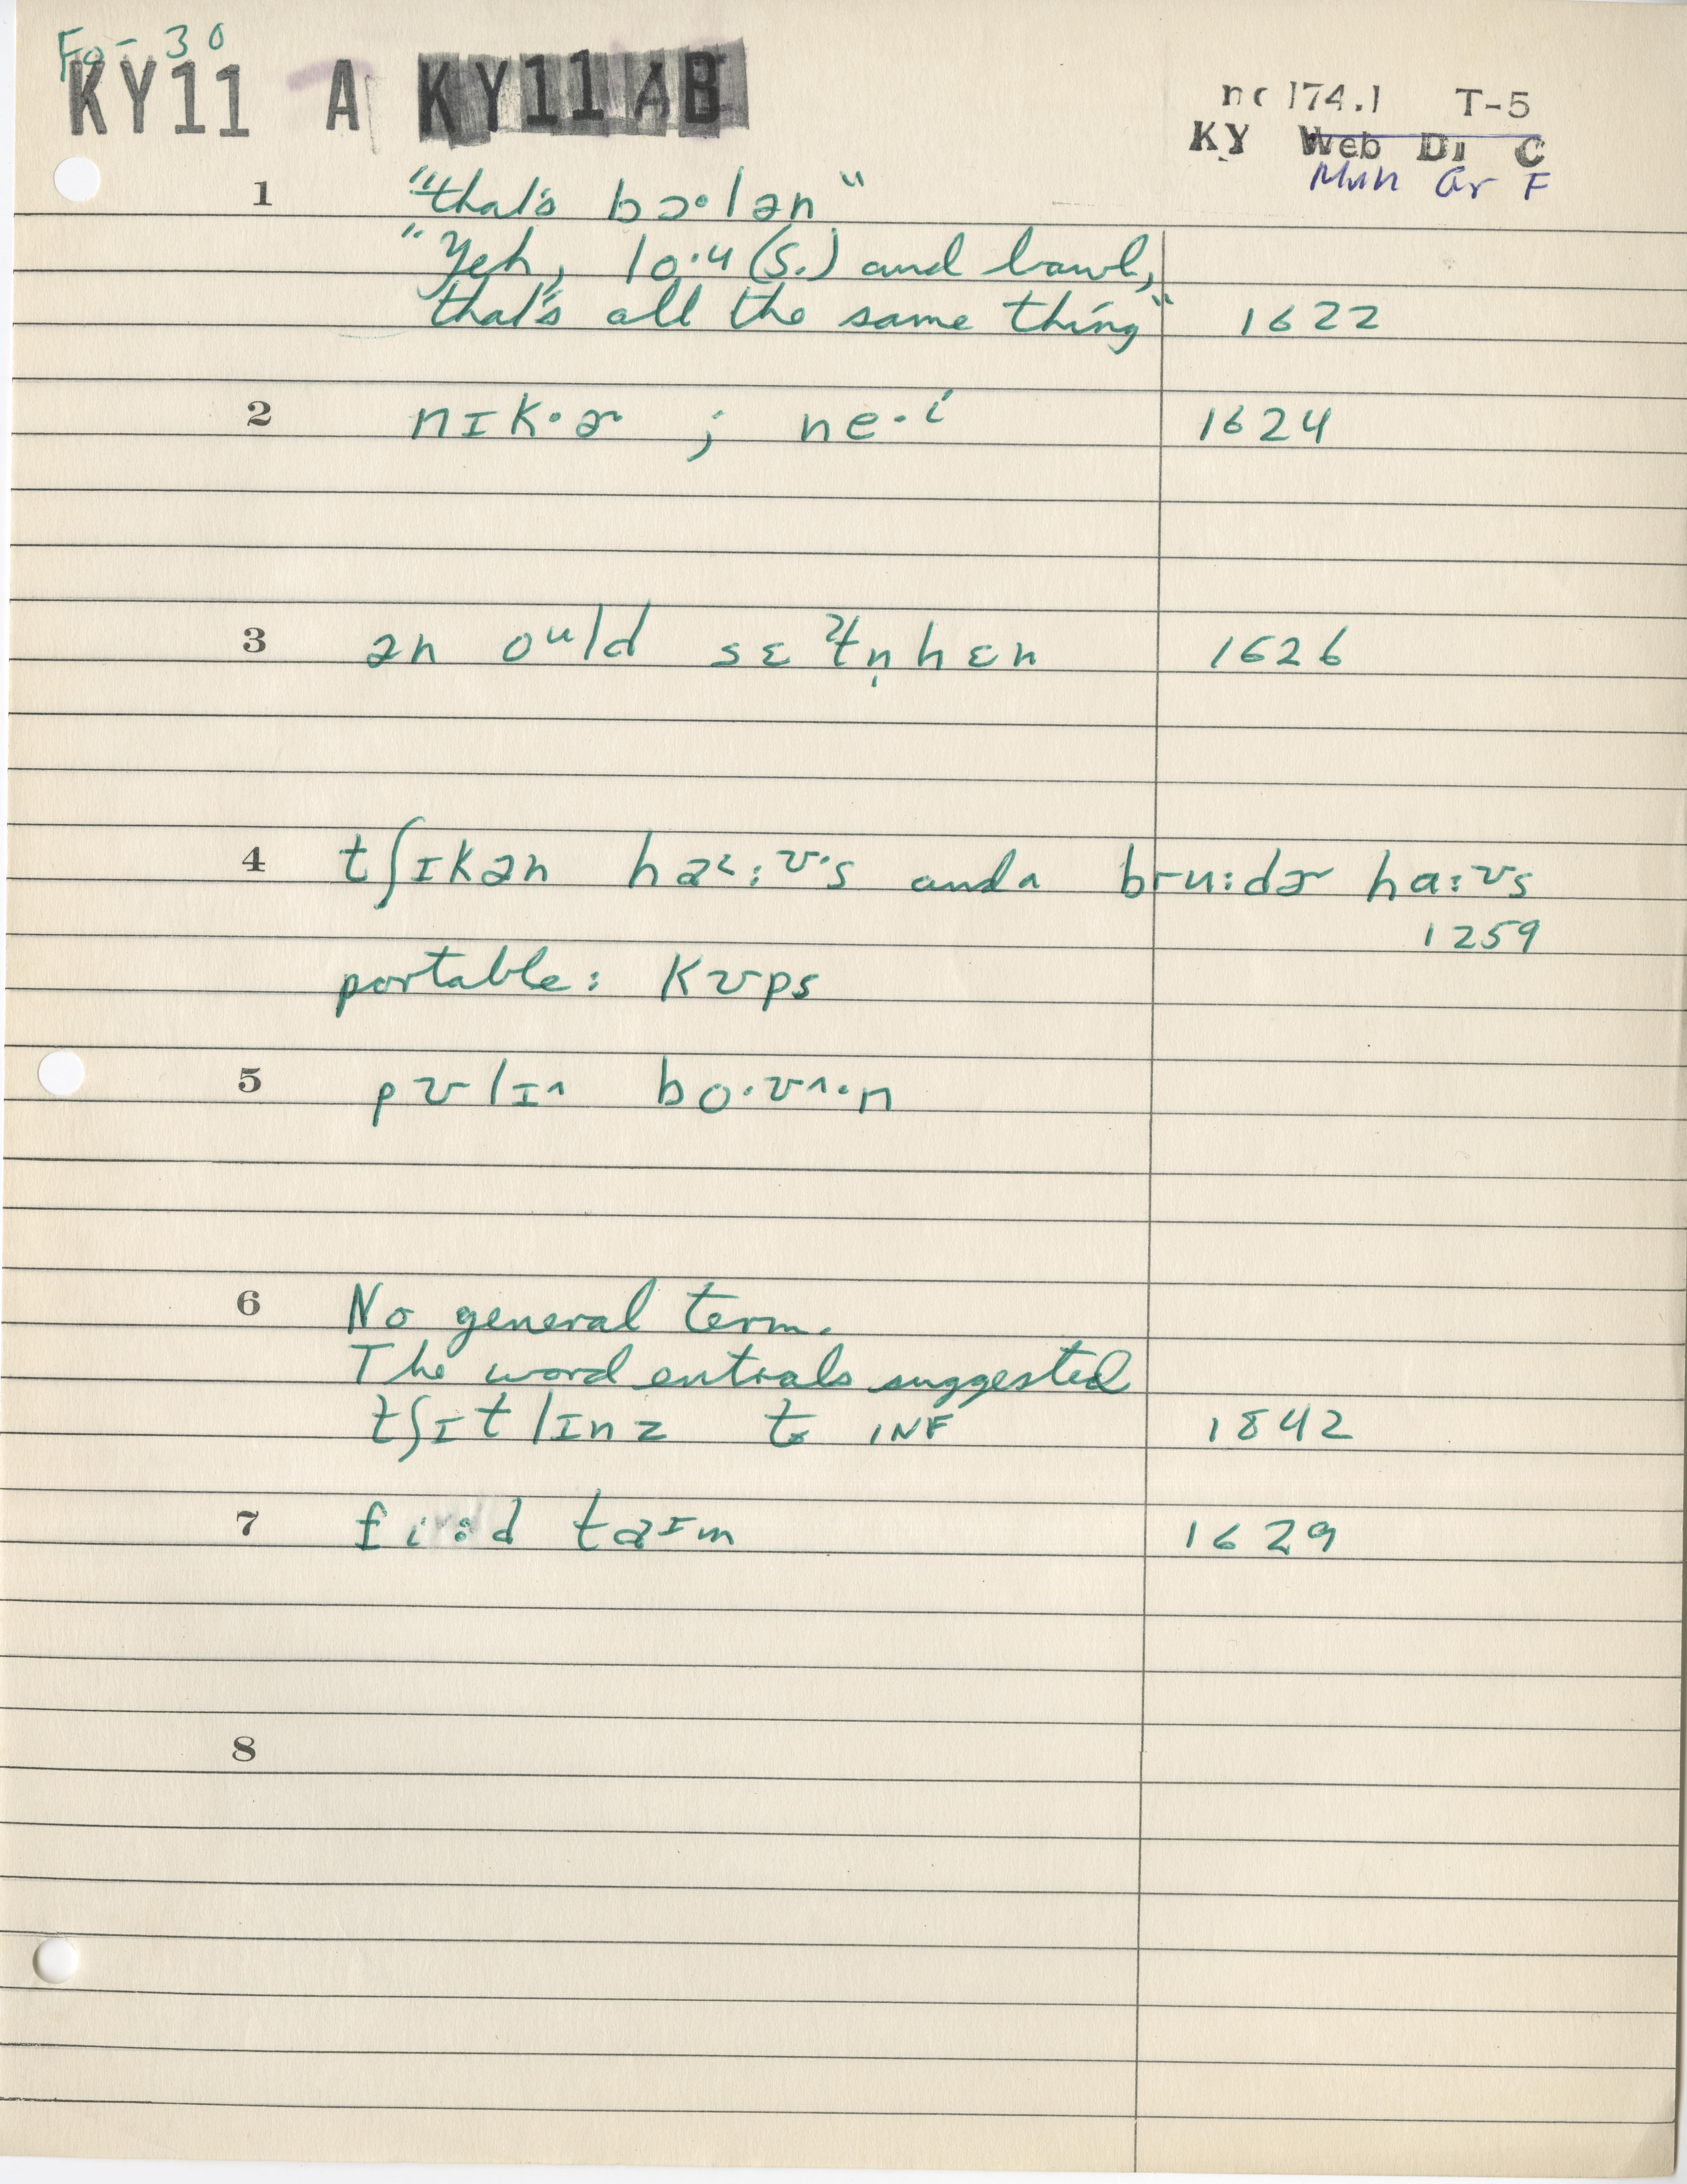 Fo-30
KY11 A KY11AB
nc 174.1 T-5
KY Web Di C
Muh Gr F
1 "that's bɔ·lən"
"Yeh, lo·u (S.) and bawl,
that's all the same thing" 1622
2 nɪk·ɚ ; ne·i 1624
3 ən oᵘld sɛʔtn̩hɛn 1626
4 tʃɪkən ha˂:ʊ·s and a bru:dɚ ha:ʊs
1259
portable: kʊps
5 pʊlɪn bo·ʊ^·n
6 No general term.
The word entrals suggested
tʃɪtlɪnz to INF 1842
7 fi:d taɪm 1629
8